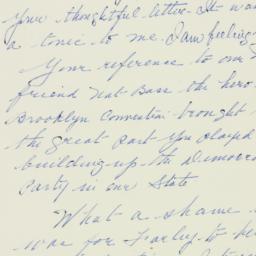 your thoughtful letter. It was
a tonic to me. I am feeling
Your reference to our
friend Nat Bass the hero
Brooklyn Convention brought
the great part you played
building up the Democra
Party in our State
What a shame
was for Farley to be